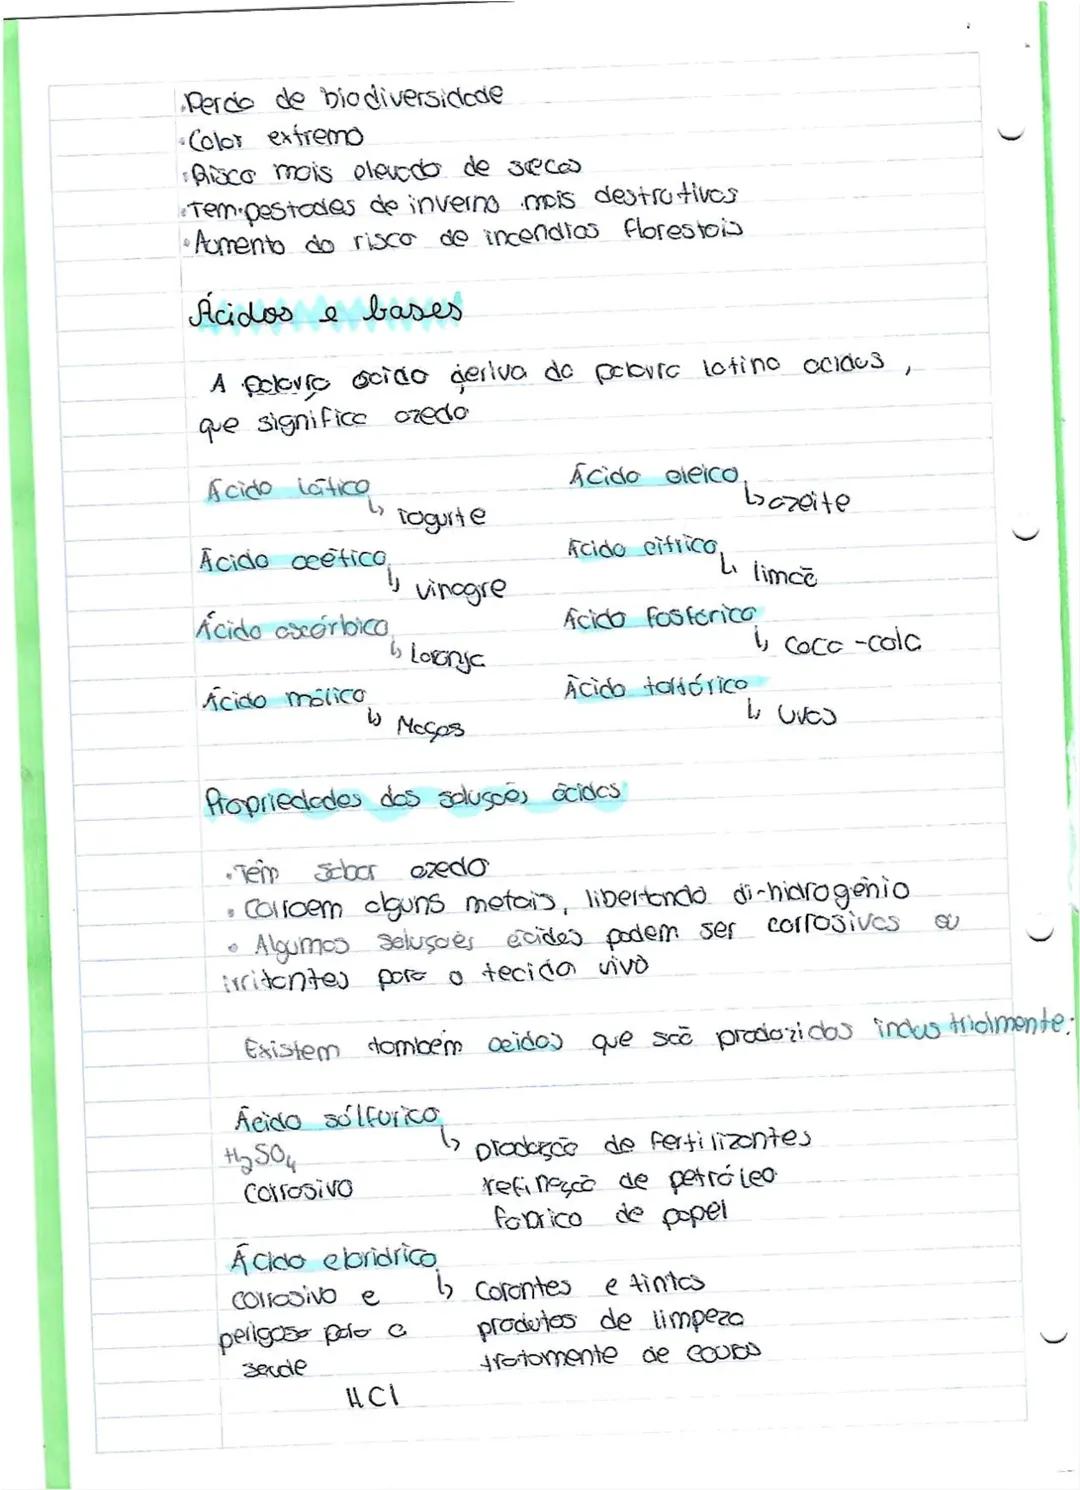 • Perda de biodiversidade
• Calor extremo
• Risco mais elevado de secas
• Tempestades de inverno mais destrutivas
• Aumento do risco de incendios florestais
Ácidos e bases
A palavra ácido deriva da palavra latina acidus,
que significa azedo
Ácido lático
↳ iogurte
Ácido oleico
↳ azeite
Ácido acético
↳ vinagre
Ácido cítrico
↳ limão
Ácido ascórbico
↳ Laranja
Ácido fosfórico
↳ Coca-cola
Ácido málico
↳ Maças
Ácido tartárico
↳ Uvas
Propriedades das soluções ácidas
• Têm sabor azedo
• Corroem alguns metais, libertando di-hidrogénio
• Algumas soluções ácidas podem ser corrosivas ou
irritantes para o tecido vivo
Existem também ácidos que são produzidos industrialmente:
Ácido súlfurico
H₂SO₄
corrosivo
↳ produção de fertilizantes
refinação de petróleo
fabrico de papel
Ácido cloridrico
corrosivo e
perigoso para a
saúde
HCl
↳ Corantes e tintas
produtos de limpeza
tratamento de couros